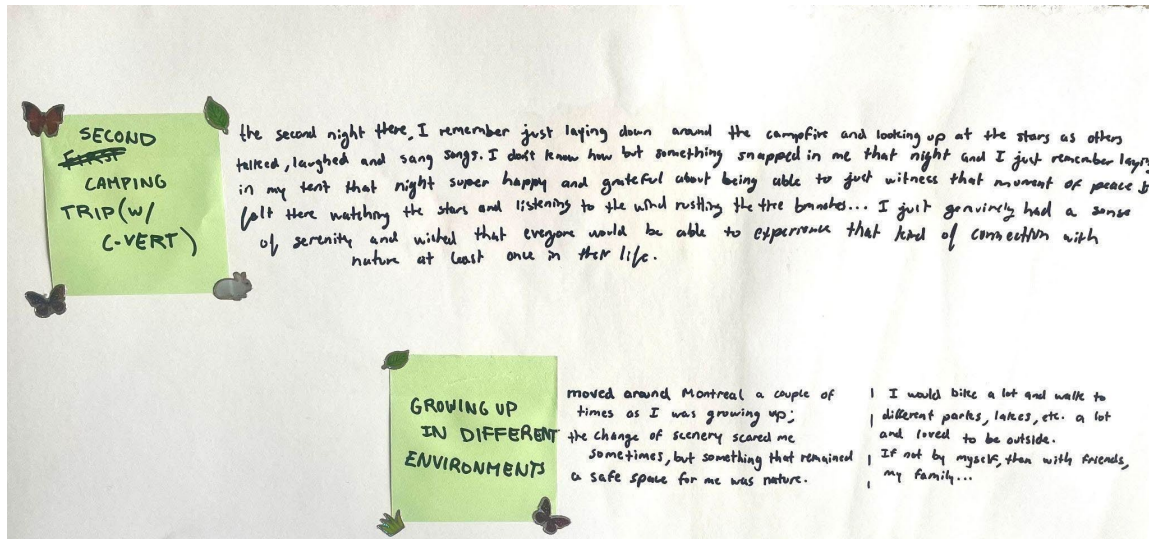 SECOND
FIRST
CAMPING
TRIP (W/
C-VERT)
the second night there, I remember just laying down around the campfire and looking up at the stars as others
talked, laughed and sang songs. I don't know how but something snapped in me that night and I just remember laying
in my tent that night super happy and grateful about being able to just witness that moment of peace
felt there watching the stars and listening to the wind rustling the tree branches... I just genuinely had a sense
of serenity and wished that everyone would be able to experience that kind of connection with
nature at least once in their life.
GROWING UP
IN DIFFERENT
ENVIRONMENTS
moved around Montreal a couple of
times as I was growing up;
the change of scenery scared me
sometimes, but something that remained
a safe space for me was nature.
I would bike a lot and walk to
different parks, lakes, etc. a lot
and loved to be outside.
If not by myself, then with friends,
my family...